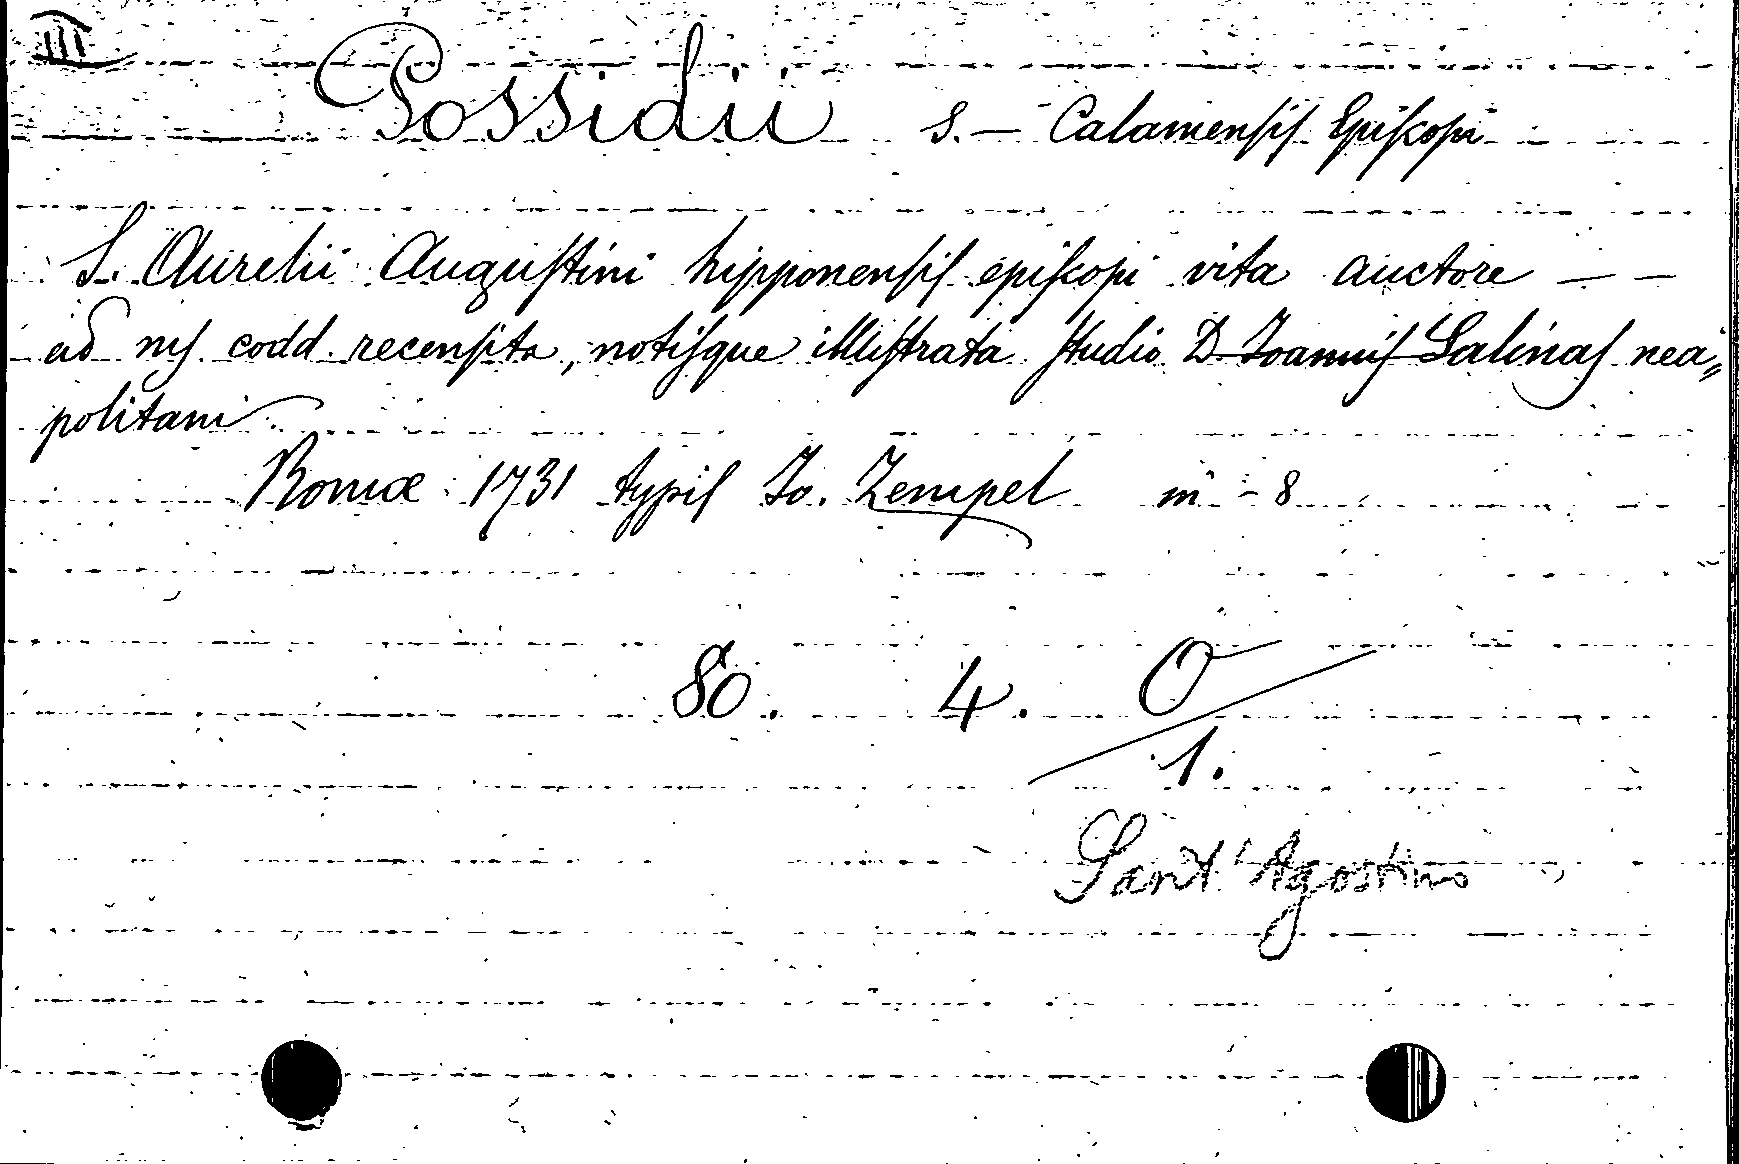 III
Possidii S. — Calamensis Episkopi
S. Aurelii Augustini hipponensis episkopi vita auctore — —
ad ms. codd. recensita, notisque illustrata studio D. Joannis Salinas nea„
politani
Romæ 1731 typis Jo. Zempel in - 8
80. 4. O/1.
Sant'Agostino